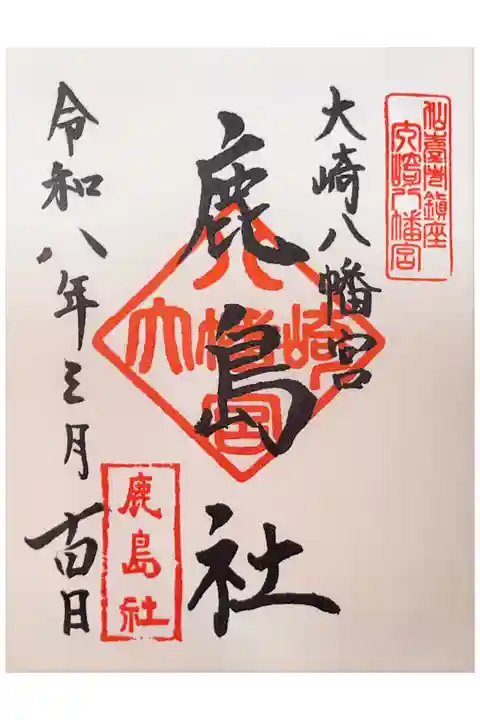 仙臺市鎮座
大崎八幡宮
大崎八幡宮
鹿島社
八
大幡崎
宮
令和八年三月吉日
鹿島社